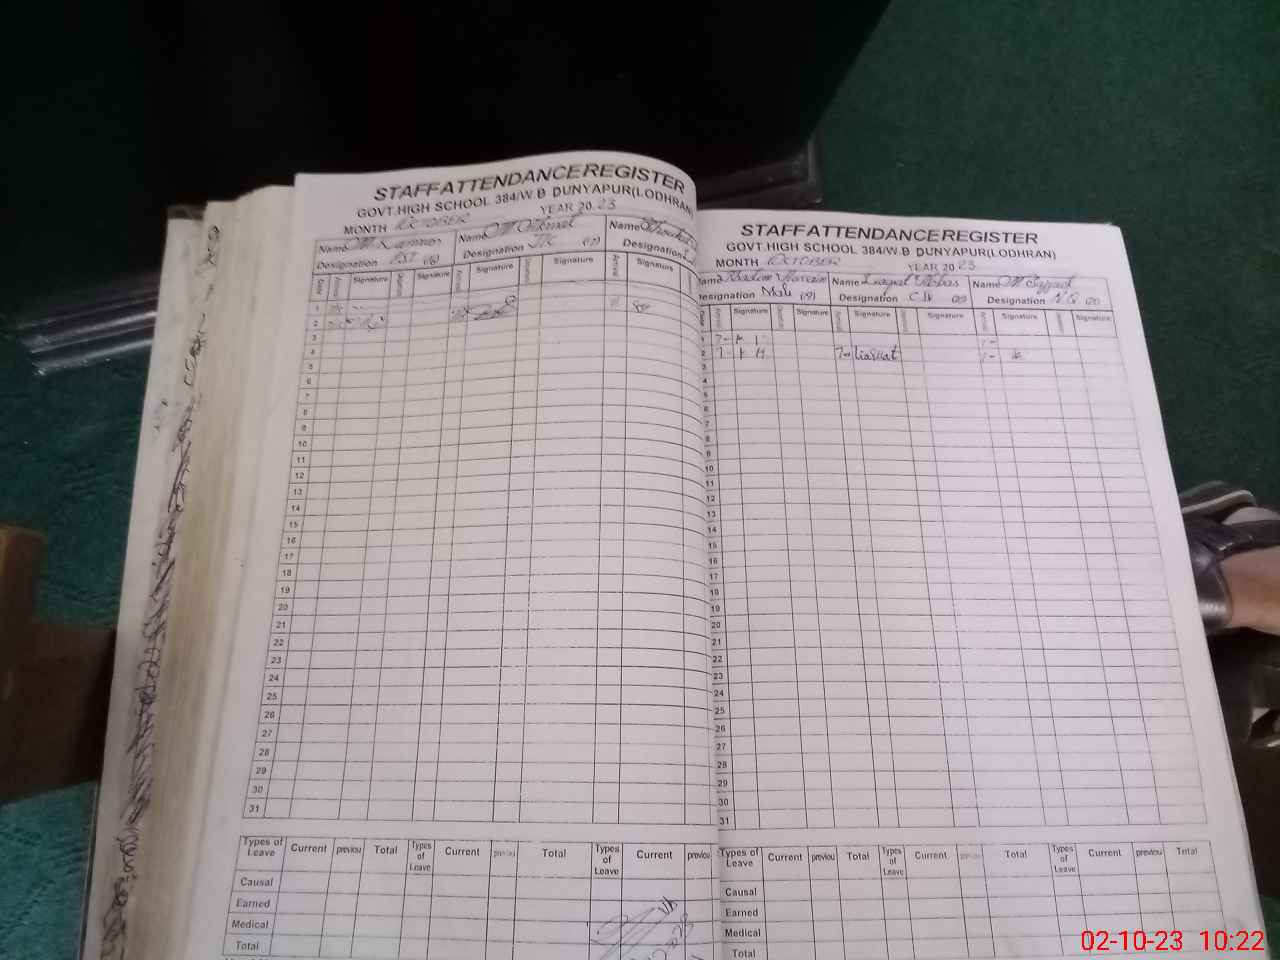 STAFF ATTENDANCE REGISTER
GOVT.HIGH SCHOOL 384/W.B DUNYAPUR(LODHRAN)
MONTH OCTOBER YEAR 2023
Name Name M Name
Designation PST Designation Designation
Date Arrival Signature Depart Signature Arrival Signature Depart Signature Arrival Signature
1
2
3
4
5
6
7
8
9
10
11
12
13
14
15
16
17
18
19
20
21
22
23
24
25
26
27
28
29
30
31
Types of Leave Current previou Total Types of Leave Current previou Total Types of Leave Current previou
Causal
Earned
Medical
Total
STAFF ATTENDANCE REGISTER
GOVT.HIGH SCHOOL 384/W.B DUNYAPUR(LODHRAN)
MONTH OCTOBER YEAR 2023
Name Name Liaqat Abbas Name M Sajjad
Designation Mali (19) Designation Designation N.Q
Date Arrival Signature Depart Signature Arrival Signature Depart Signature Arrival Signature Depart Signature
1
2 Liaquat
3
4
5
6
7
8
9
10
11
12
13
14
15
16
17
18
19
20
21
22
23
24
25
26
27
28
29
30
31
Types of Leave Current previou Total Types of Leave Current previou Total Types of Leave Current previou Total
Causal
Earned
Medical
Total
02-10-23 10:22